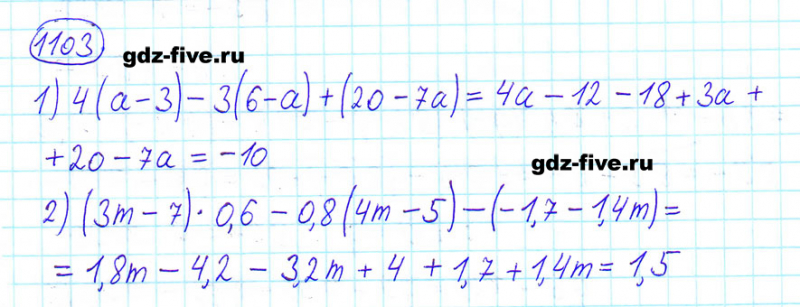 1103
gdz-five.ru
1) 4(a-3)-3(6-a)+(20-7a)=4a-12-18+3a+
+20-7a=-10
gdz-five.ru
2) (3m-7)·0,6-0,8(4m-5)-(-1,7-1,4m)=
=1,8m-4,2-3,2m+4+1,7+1,4m=1,5